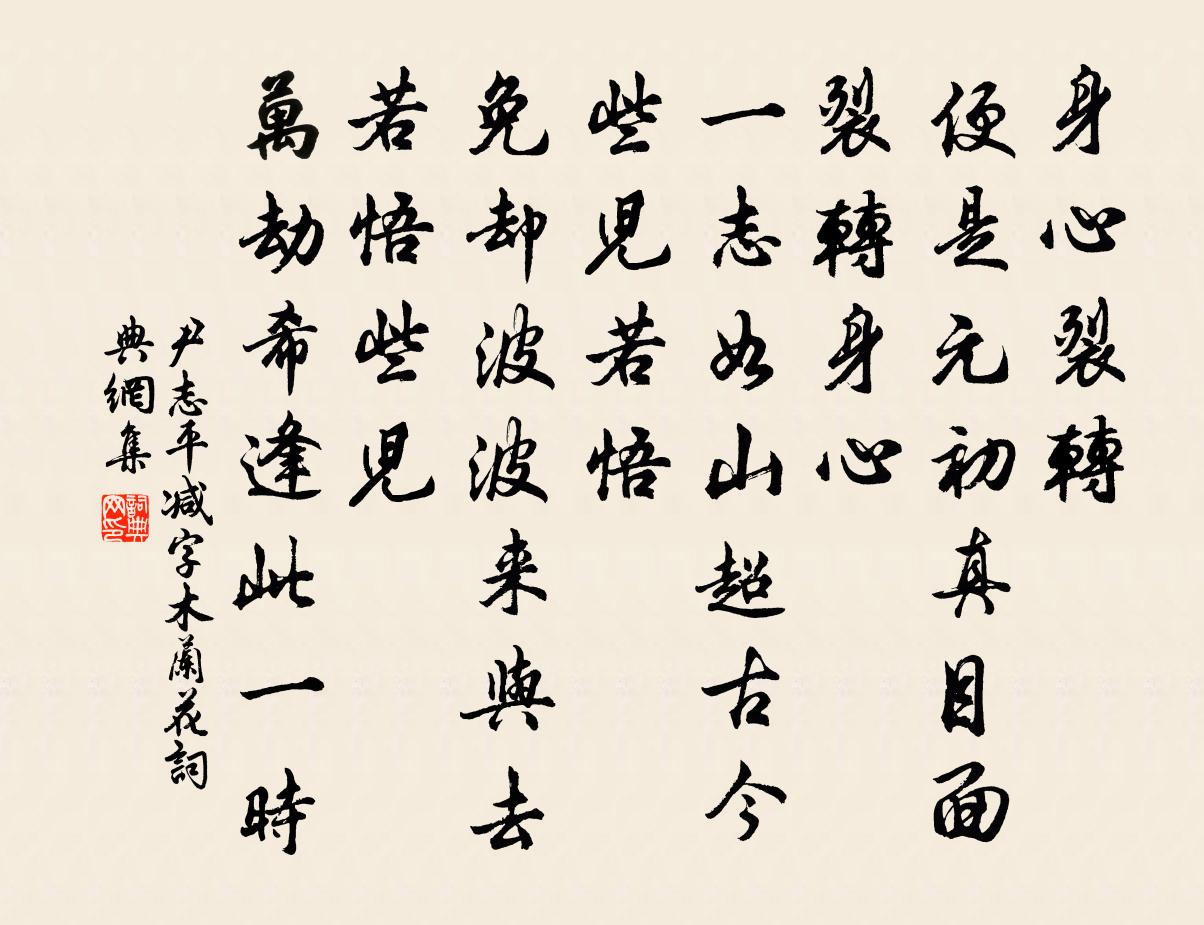 身心裂轉
便是元初真目面
裂轉身心
一志如山超古今
些児若悟
免却波波来與去
若悟些児
萬劫希逢此一時
尹志平減字木蘭花詞
典網集
詞典网印